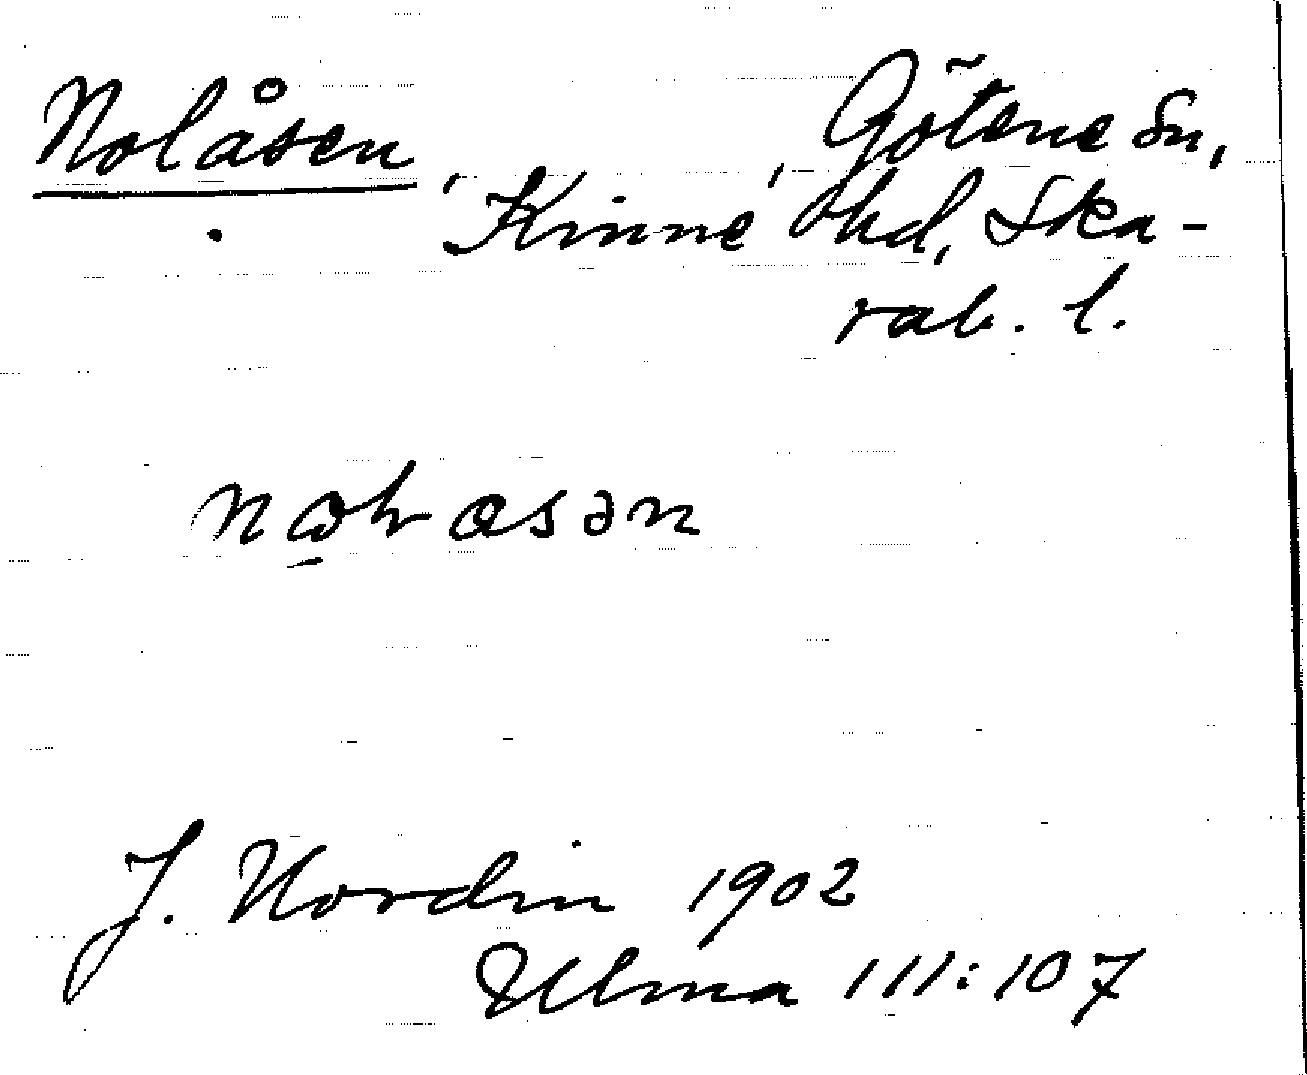 Nolåsen, Götene sn,
Kinne hd, Ska-
rab. l.
J. Nordin 1902
Ulma 111:107